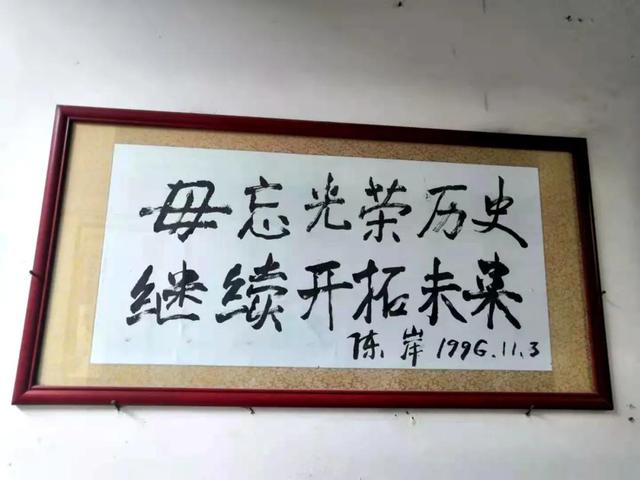 毋忘光荣历史
继续开拓未来
陈岸 1996.11.3